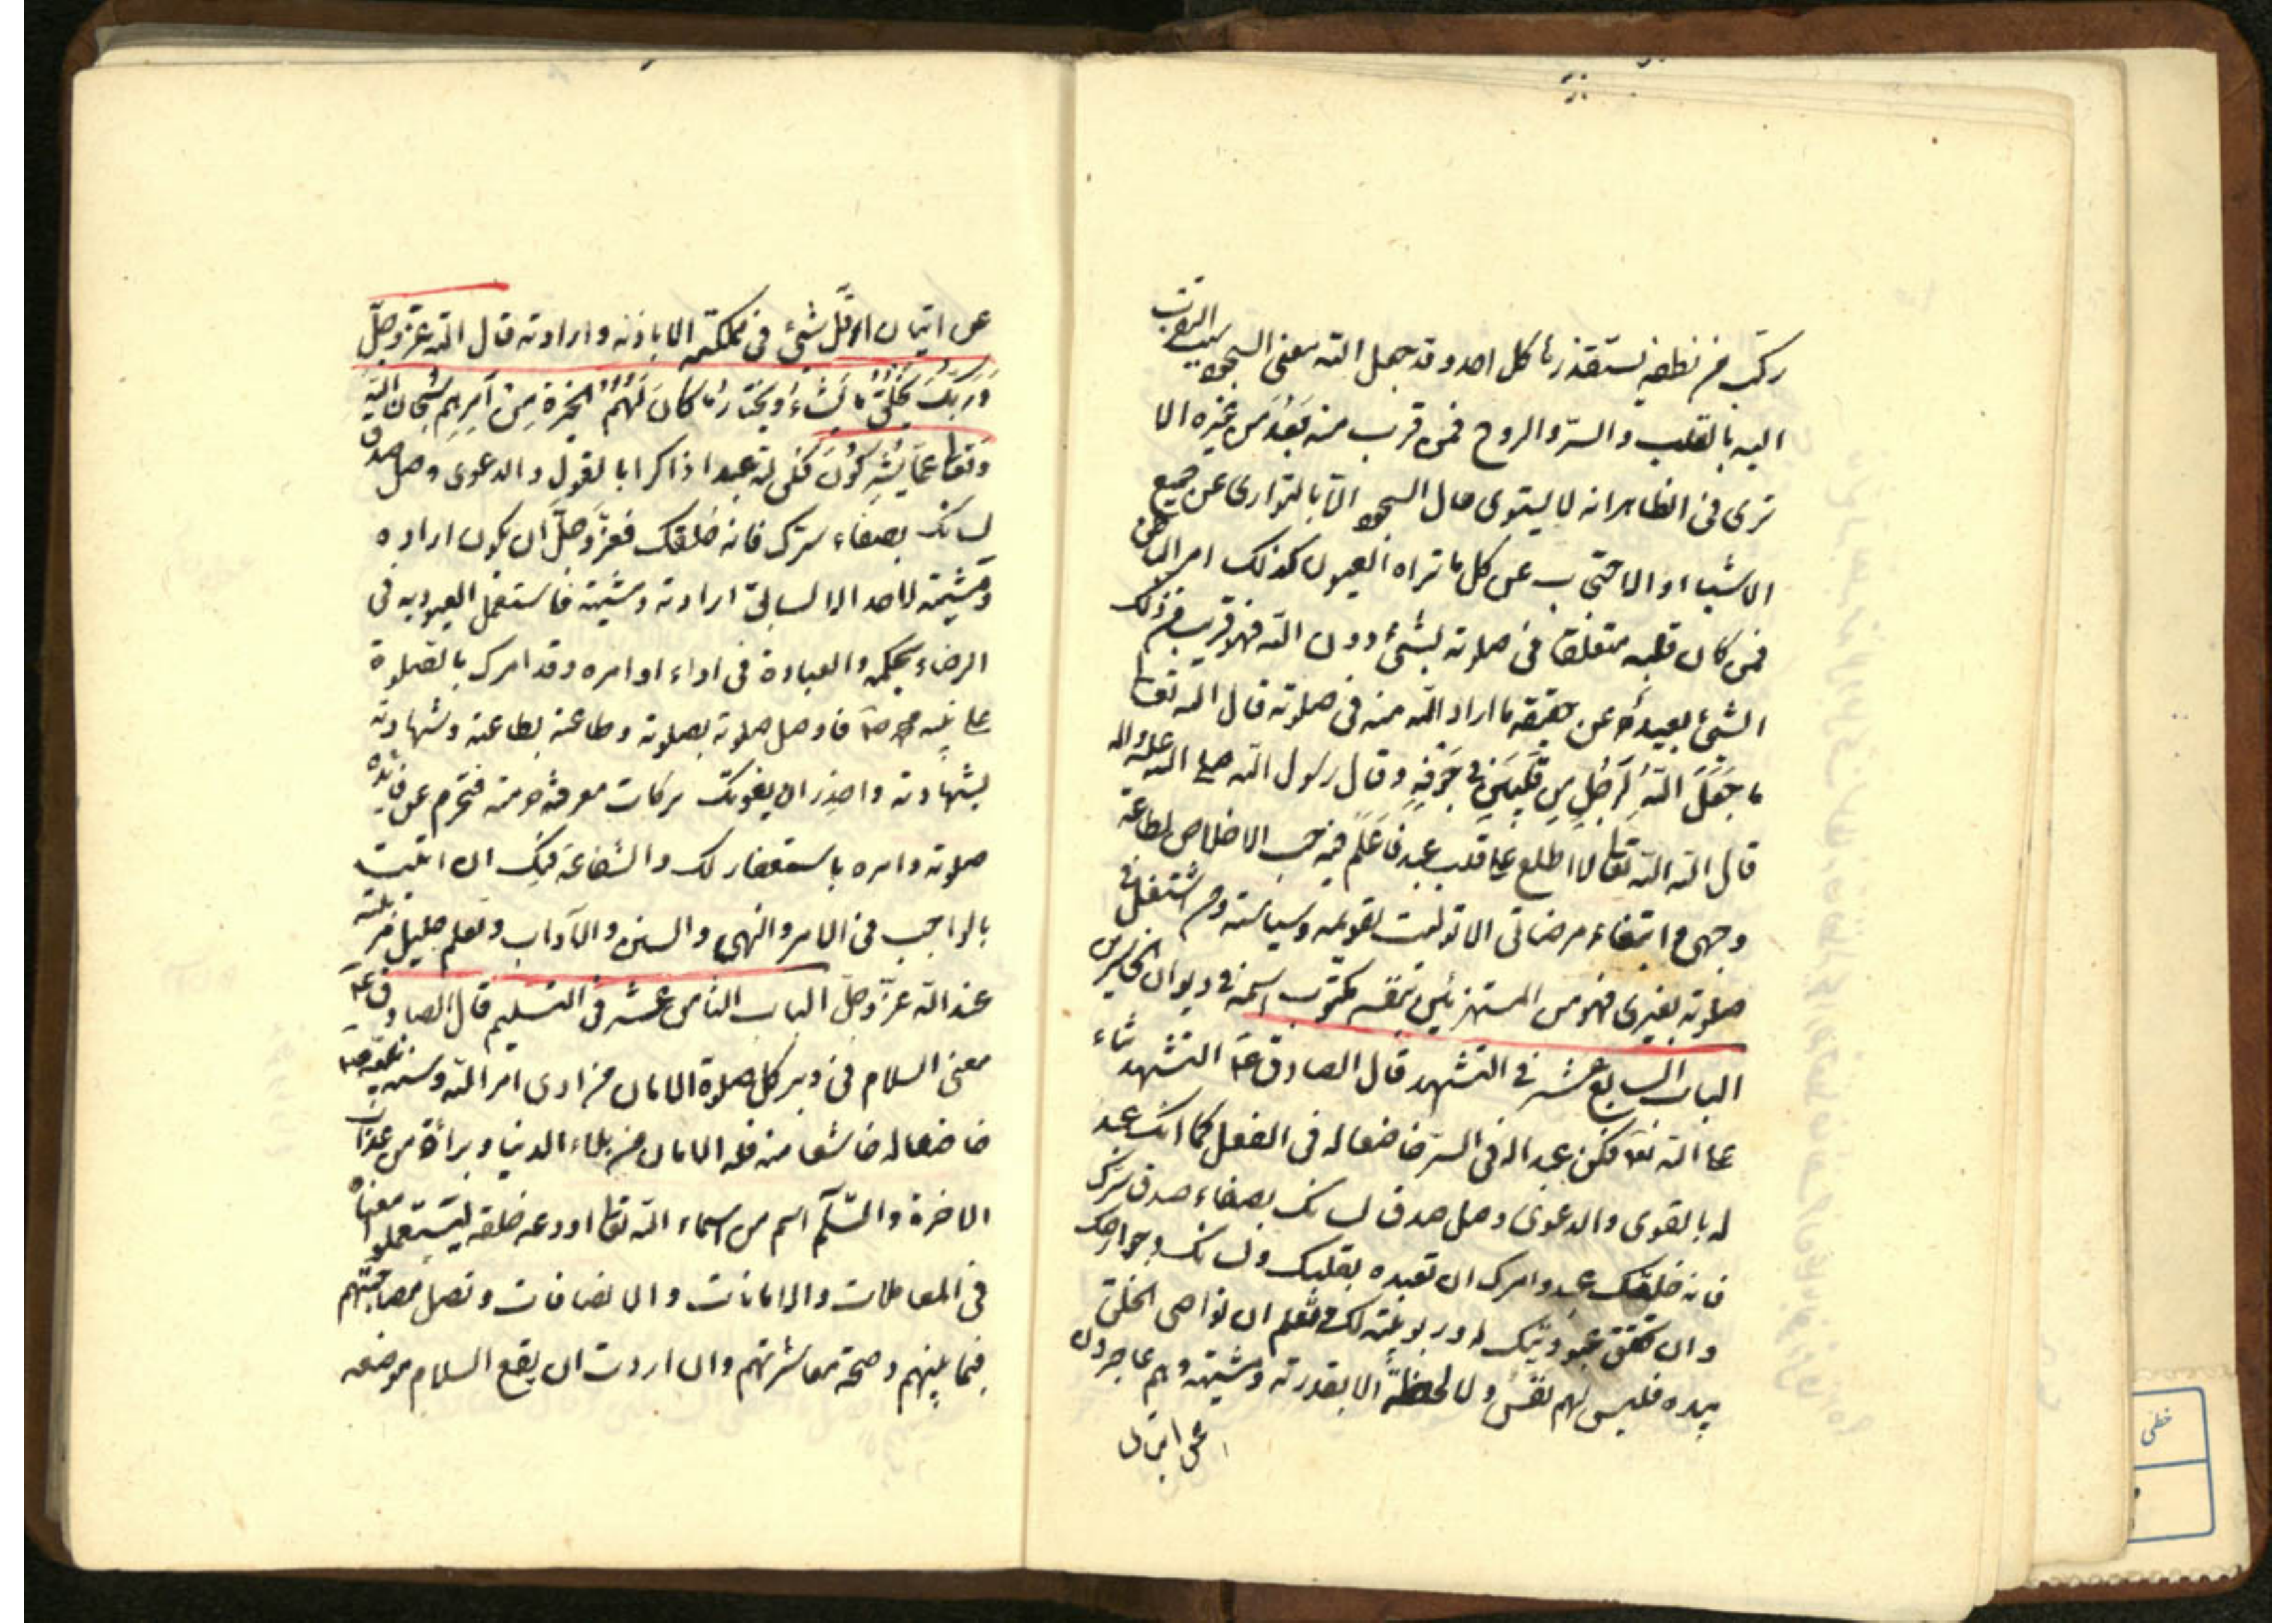 ركب من نطفة يستقذرها كل احد وقد جعل الله معنى السجود سبب التقرب
اليه بالقلب والسرّ والروح فمن قرب منه بَعُدَ من غيره الا
ترى فى الظاهر انه لا يستوى حال السجود الّا بالتوارى عن جميع
الاشياء والاحتجاب عن كل ما تراه العيون كذلك امر الباطن
فمن كان قلبه متعلقا فى صلوته بشئ دون الله فهو قريب من ذلك
الشئ بعيد عن حقيقة ما اراد الله منه فى صلوته قال الله تعالى
ما جَعَلَ اللّهُ لِرَجُلٍ مِن قَلْبَيْنِ فى جَوْفِهِ وقال رسول الله صلى الله عليه واله
قال الله تعالى لا اطلع على قلب عبد فَأعلَمُ فيه حب الاخلاص لطاعة
وجهى وابتغاء مرضاتى الا توليت تقويمه وسياسته ومن اشتغل فى
صلوته بغيرى فهو من المستهزئين بنفسه مكتوب اسمه فى ديوان الخاسرين
الباب السابع عشر فى التشهد قال الصادق عم التشهد ثناء
على الله تعا فكن عبدا له فى السرّ خاضعا له فى الفعل كما انك عبد
له بالقوى والدعوى وصل صدق لسانك بصفاء صدق سرّك
فانه خلقك عبدا وامرك ان تعبده بقلبك ولسانك وجوارحك
وان تحقق عبوديتك له وربوبيّته لك وتعلم ان نواصى الخلق
بيده فليس لهم نفسٌ ولا لحظةٌ الا بقدرته ومشيته وهم عاجزون
عن اتيان
عن اتيان اقلّ شئ فى مملكته الا باذنه وارادته قال الله عزّ وجلّ
وَرَبُّكَ يَخْلُقُ ما يَشاءُ وَيَخْتارُ ما كانَ لَهُمُ الخِيَرَةُ مِنْ اَمرِهِم سُبْحانَ اللّهِ
وَتعالى عَمّا يُشْرِكُونَ فكن لله عبدا ذاكرا بالقول والدعوى وصل صدق
لسانك بصفاء سرّك فانه خلقك فعزّ وجلّ ان يكون ارادة
ومشيّته لاحد الا لسابق ارادته ومشيته فاستعمل العبودية فى
الرضاء بحكمه والعبادة فى اداء اوامره وقد امرك بالصلوة
على نبيّه محمد ص فاوصل صلوته بصلوته وطاعته بطاعته وشهادته
بشهادته واحذر ان يفوتك بركات معرفة حرمته فتحرم عن فايدة
صلوته وامره باستغفار لك والشفاعة فيك ان اتيت
بالواجب فى الامر والنهى والسنن والآداب وتعلم جليل مرتبته
عند الله عزّ وجلّ الباب الثامن عشر فى التسليم قال الصادق عم
معنى السلام فى دبر كل صلوة الامان من ادى امر الله وسنة نبيه ص
خاضعا له خاشعا منه فله الامان من بلاء الدنيا وبرائة من عذاب
الاخرة والسّلام اسم من اسماء الله تعالى اودعه خلقه ليستعملوا معناه
فى المعاملات والامانات والاضافات وتصل مصاحبتهم
فيما بينهم وصحة معاشرتهم وان اردت ان يقع السلام موضعه
خطى